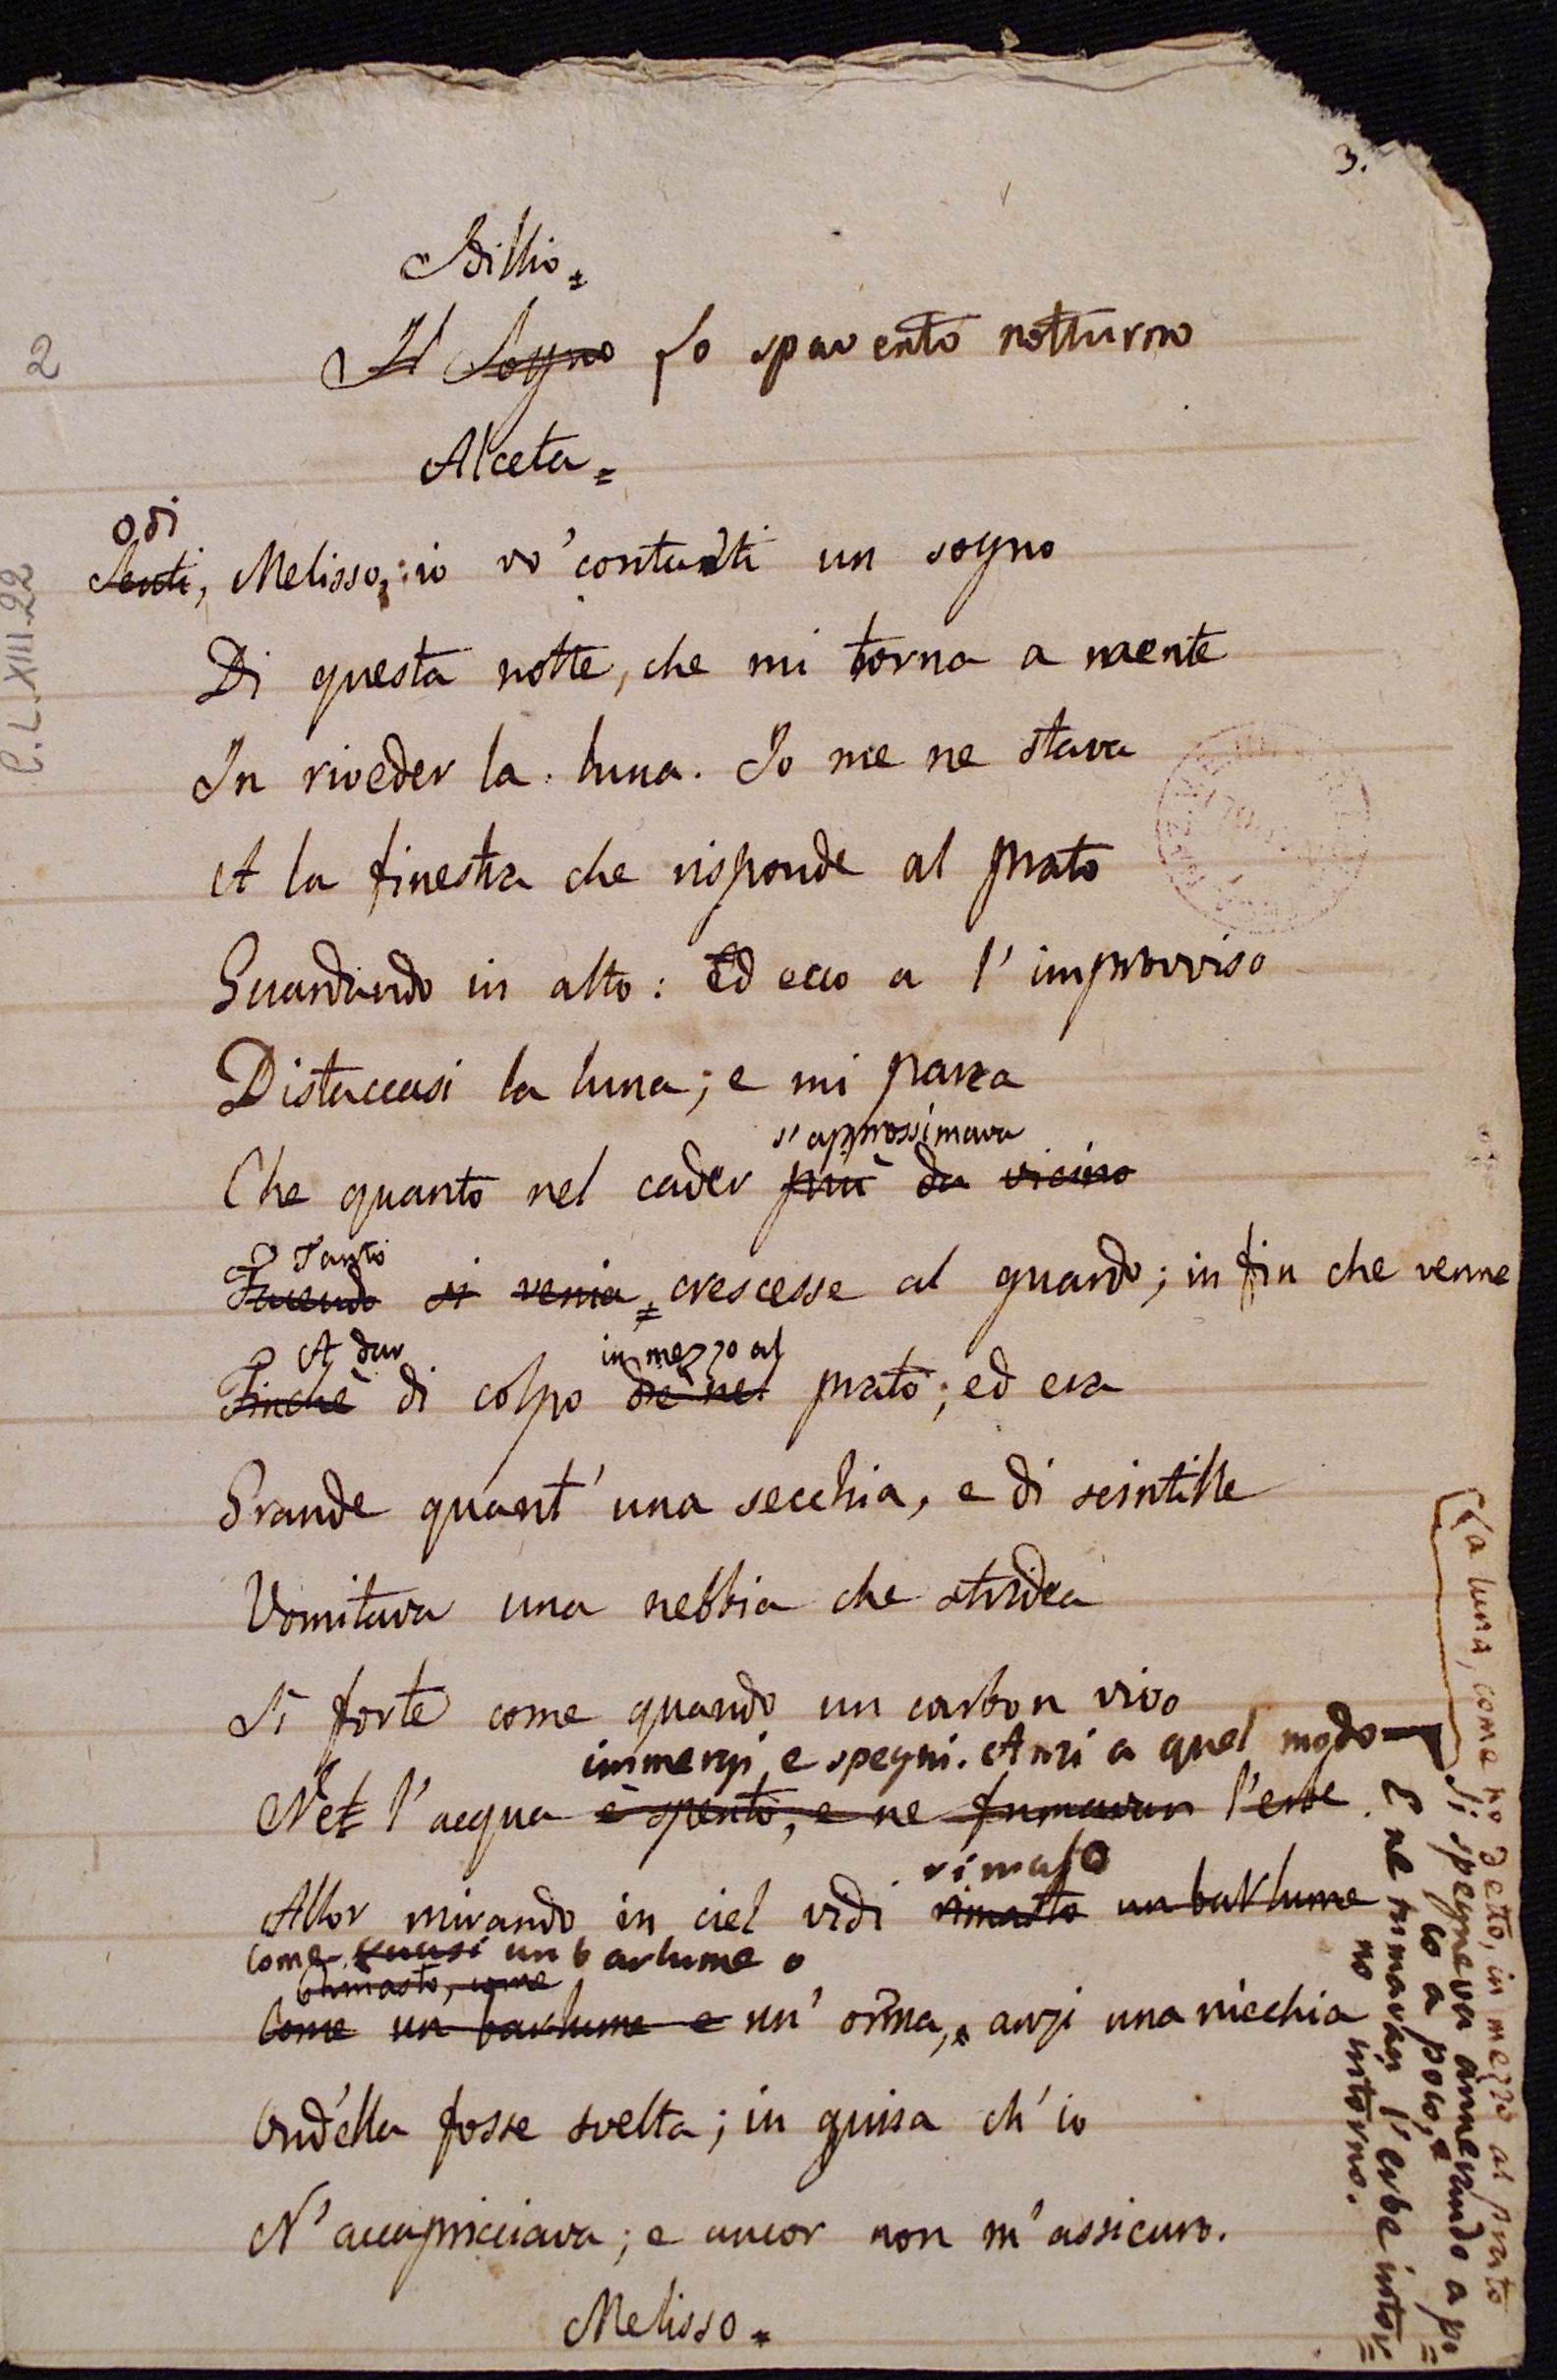 3.
Idillio.
Il Sogno Lo spavento notturno
Alceta.
Odi
Senti, Melisso: io vo' contarti un sogno
Di questa notte, che mi torna a mente
In riveder la luna. Io me ne stava
A la finestra che risponde al prato
Guardando in alto: Ed ecco a l'improvviso
Distaccasi la luna; e mi parea
s'approssimava
Che quanto nel cader più da vicino
Tanto
Facendo si venia crescesse al guardo; in fin che venne
A dar in mezzo al
Finchè di colpo diè nel prato; ed era
Grande quant'una secchia, e di scintille
Vomitava una nebbia che stridea
Sì forte come quando un carbon vivo
immergi e spegni. Anzi a quel modo
Nel l'acqua è spento, e ne fumavan l'erbe.
rimaso
Allor mirando in ciel vidi rimasto un barlume
Come quasi un barlume o
rimasto, come
Come un barlume e un'orma, anzi una nicchia
Ond'ella fosse svelta; in guisa ch'io
N'accapricciava; e ancor non m'assicuro.
Melisso.
La luna, come ho detto, in mezzo al prato
Si spegneva annerando a po=
co a poco,
E ne fumavan l'erbe intor=
no intorno.
2
C.L.XIII.22